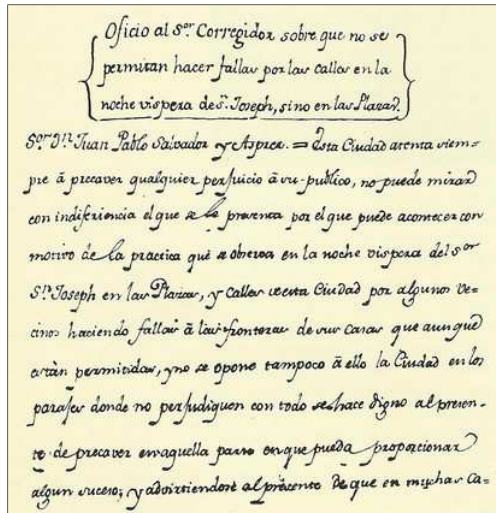 Oficio al S.or Corregidor sobre que no se
permitan hacer fallas por las calles en la
noche vispera de S.n Joseph, sino en las Plazas.
S.or D.n Juan Pablo Salvador y Asprer. = Esta Ciudad atenta siem-
pre â precaver qualquier perjuicio â su publico, no puede mirar
con indiferiencia el que se le presenta por el que puede acontecer con
motivo de la practica que se observa en la noche vispera del S.or
S.n Joseph en las Plazas, y Calles de esta Ciudad por algunos ve-
cinos haciendo fallas â las fronteras de sus casas que aunque
estàn permitidas, y no se opone tampoco â ello la Ciudad en los
parajes donde no perjudiquen con todo se hace digno al presen-
te de precaver en aquella parte en que pueda proporcionar
algun suceso; y advirtiendose al presente de que en muchas Ca=